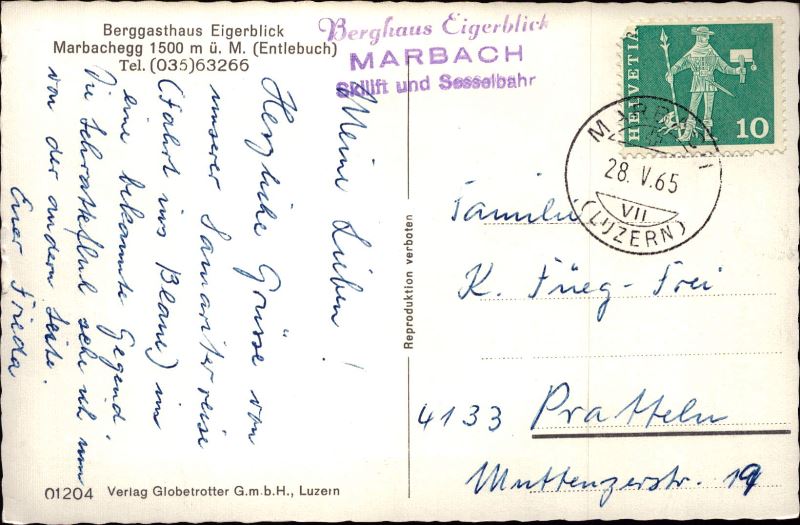 Berggasthaus Eigerblick
Marbachegg 1500 m ü. M. (Entlebuch)
Tel. (035) 63266
Berghaus Eigerblick
MARBACH
Skilift und Sesselbahr
HELVETIA
10
MARBACH
28. V. 65
VII
(LUZERN)
Meine Lieben!
Herzliche Grüsse von
unserer Samariterreise
(Fahrt ins Blaue) in
eine bekannte Gegend.
Die Schrattefluh sehe ich nun
von der andern Seite.
Euer Frieda
Reproduktion verboten
Familie
K. Füeg-Frei
4133 Pratteln
Muttenzerstr. 19
01204 Verlag Globetrotter G.m.b.H., Luzern